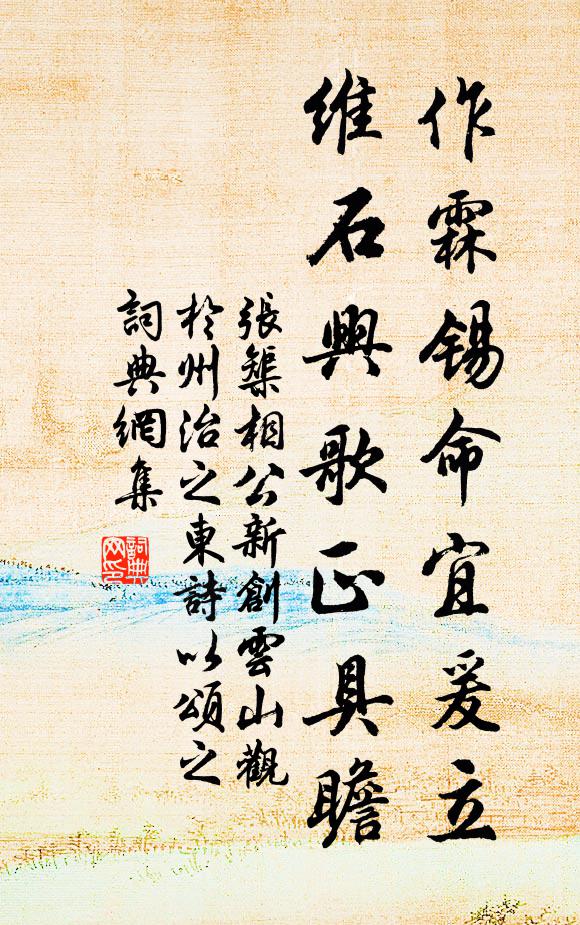 作霖錫命宜爰立
維石興歌正具瞻
張榘相公新創雲山觀
於州治之東詩以頌之
詞典網集
詞典網印